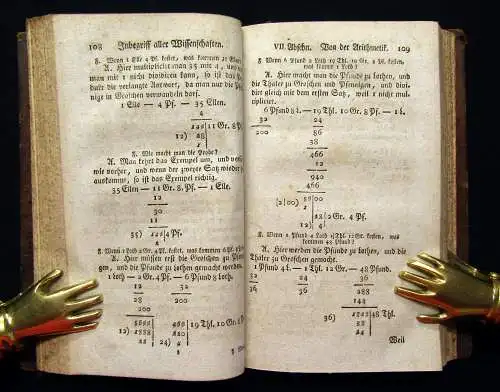 108 Inbegriff aller Wissenschaften.
F. Wenn 1 Elle 4 Pf. kostet, was kommen 35 Ellen?
A. Hier multiplicirt man 35 mit 4, und
man mit 1 nicht dividiren kann, so ist das
duct die verlangte Antwort, da man nur die Pf.
nige in Groschen verwandeln darf.
1 Elle — 4 Pf. — 35 Ellen.
4
12) 140 | 11 Gr. 8 Pf.
F. Wie macht man die Probe?
A. Man kehrt das Exempel um, und
wie vorher, und wenn der zweyte Satz wieder
auskommt, so ist das Exempel richtig.
35 Ellen — 11 Gr. 8 Pf. — 1 Elle.
12
30
11
35) 140 | 4 Pf.
F. Wenn 1 Loth 2 Gr. 4 Pf. kostet, was kommen 6 Pfd.
A. Hier müssen erst die Groschen zu Pfen-
gen, und die Pfunde zu Lothen gemacht werden.
1 Loth — 2 Gr. 4 Pf. — 6 Pfund 8 Loth.
12 32
28 200
200
19 Thl. 10 Gr. 8
VII. Abschn. Von der Arithmetik. 109
F. Wenn 6 Pfund 8 Loth 19 Thl. 10 Gr. 8 Pf. kosten,
was kommt 1 Loth?
A. Hier macht man die Pfunde zu Lothen, und
die Thaler zu Groschen und Pfennigen, und divi-
dirt gleich mit dem ersten Satz, weil 1 nicht mul-
tiplicirt.
6 Pfund 8 L. — 19 Thl. 10 Gr. 8 Pf. — 1 L.
32 24
200 86
38
466
12
940
466
2|00)
12 | 2 Gr. 4 Pf.
F. Wenn 1 Pfund 4 Loth 1 Thl. 12 Gr. kosten, was
kommen 48 Pfund?
A. Hier werden die Pfunde zu Lothen, und die
Thaler zu Groschen gemacht.
1 Pfund 4 L. — 1 Thl. 12 Gr. — 48 Pfund.
32 24 32
36 36 288
144
36) | 48 Thl.
24
Weil